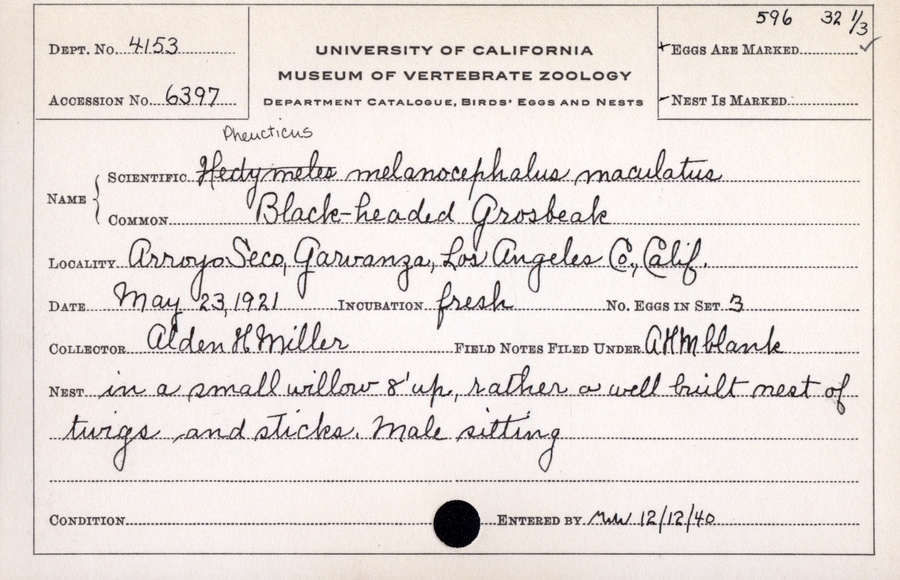 596 32 1/3
DEPT. NO. 4153
UNIVERSITY OF CALIFORNIA
EGGS ARE MARKED ✓
MUSEUM OF VERTEBRATE ZOOLOGY
ACCESSION NO. 6397
DEPARTMENT CATALOGUE, BIRDS' EGGS AND NESTS
NEST IS MARKED
Pheucticus
NAME { SCIENTIFIC Hedymeles melanocephalus maculatus
COMMON Black-headed Grosbeak
LOCALITY Arroyo Seco, Garvanza, Los Angeles Co., Calif.
DATE May 23, 1921 INCUBATION fresh NO. EGGS IN SET 3
COLLECTOR Alden H Miller FIELD NOTES FILED UNDER AHM blank
NEST in a small willow 8' up, rather a well built nest of
twigs and sticks. Male sitting
CONDITION ENTERED BY 12/12/40